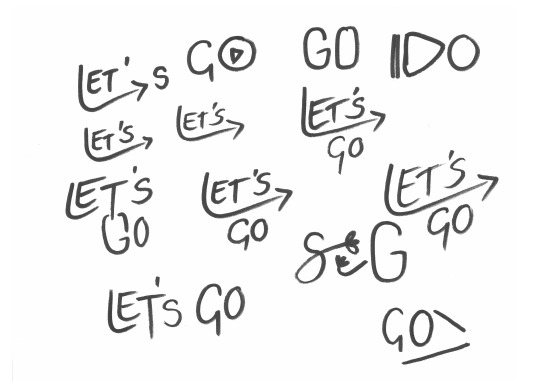 LET'S GO GO IDO
LET'S LET'S LET'S
GO
LET'S LET'S LET'S
GO GO GO
S G
LET'S GO
GO